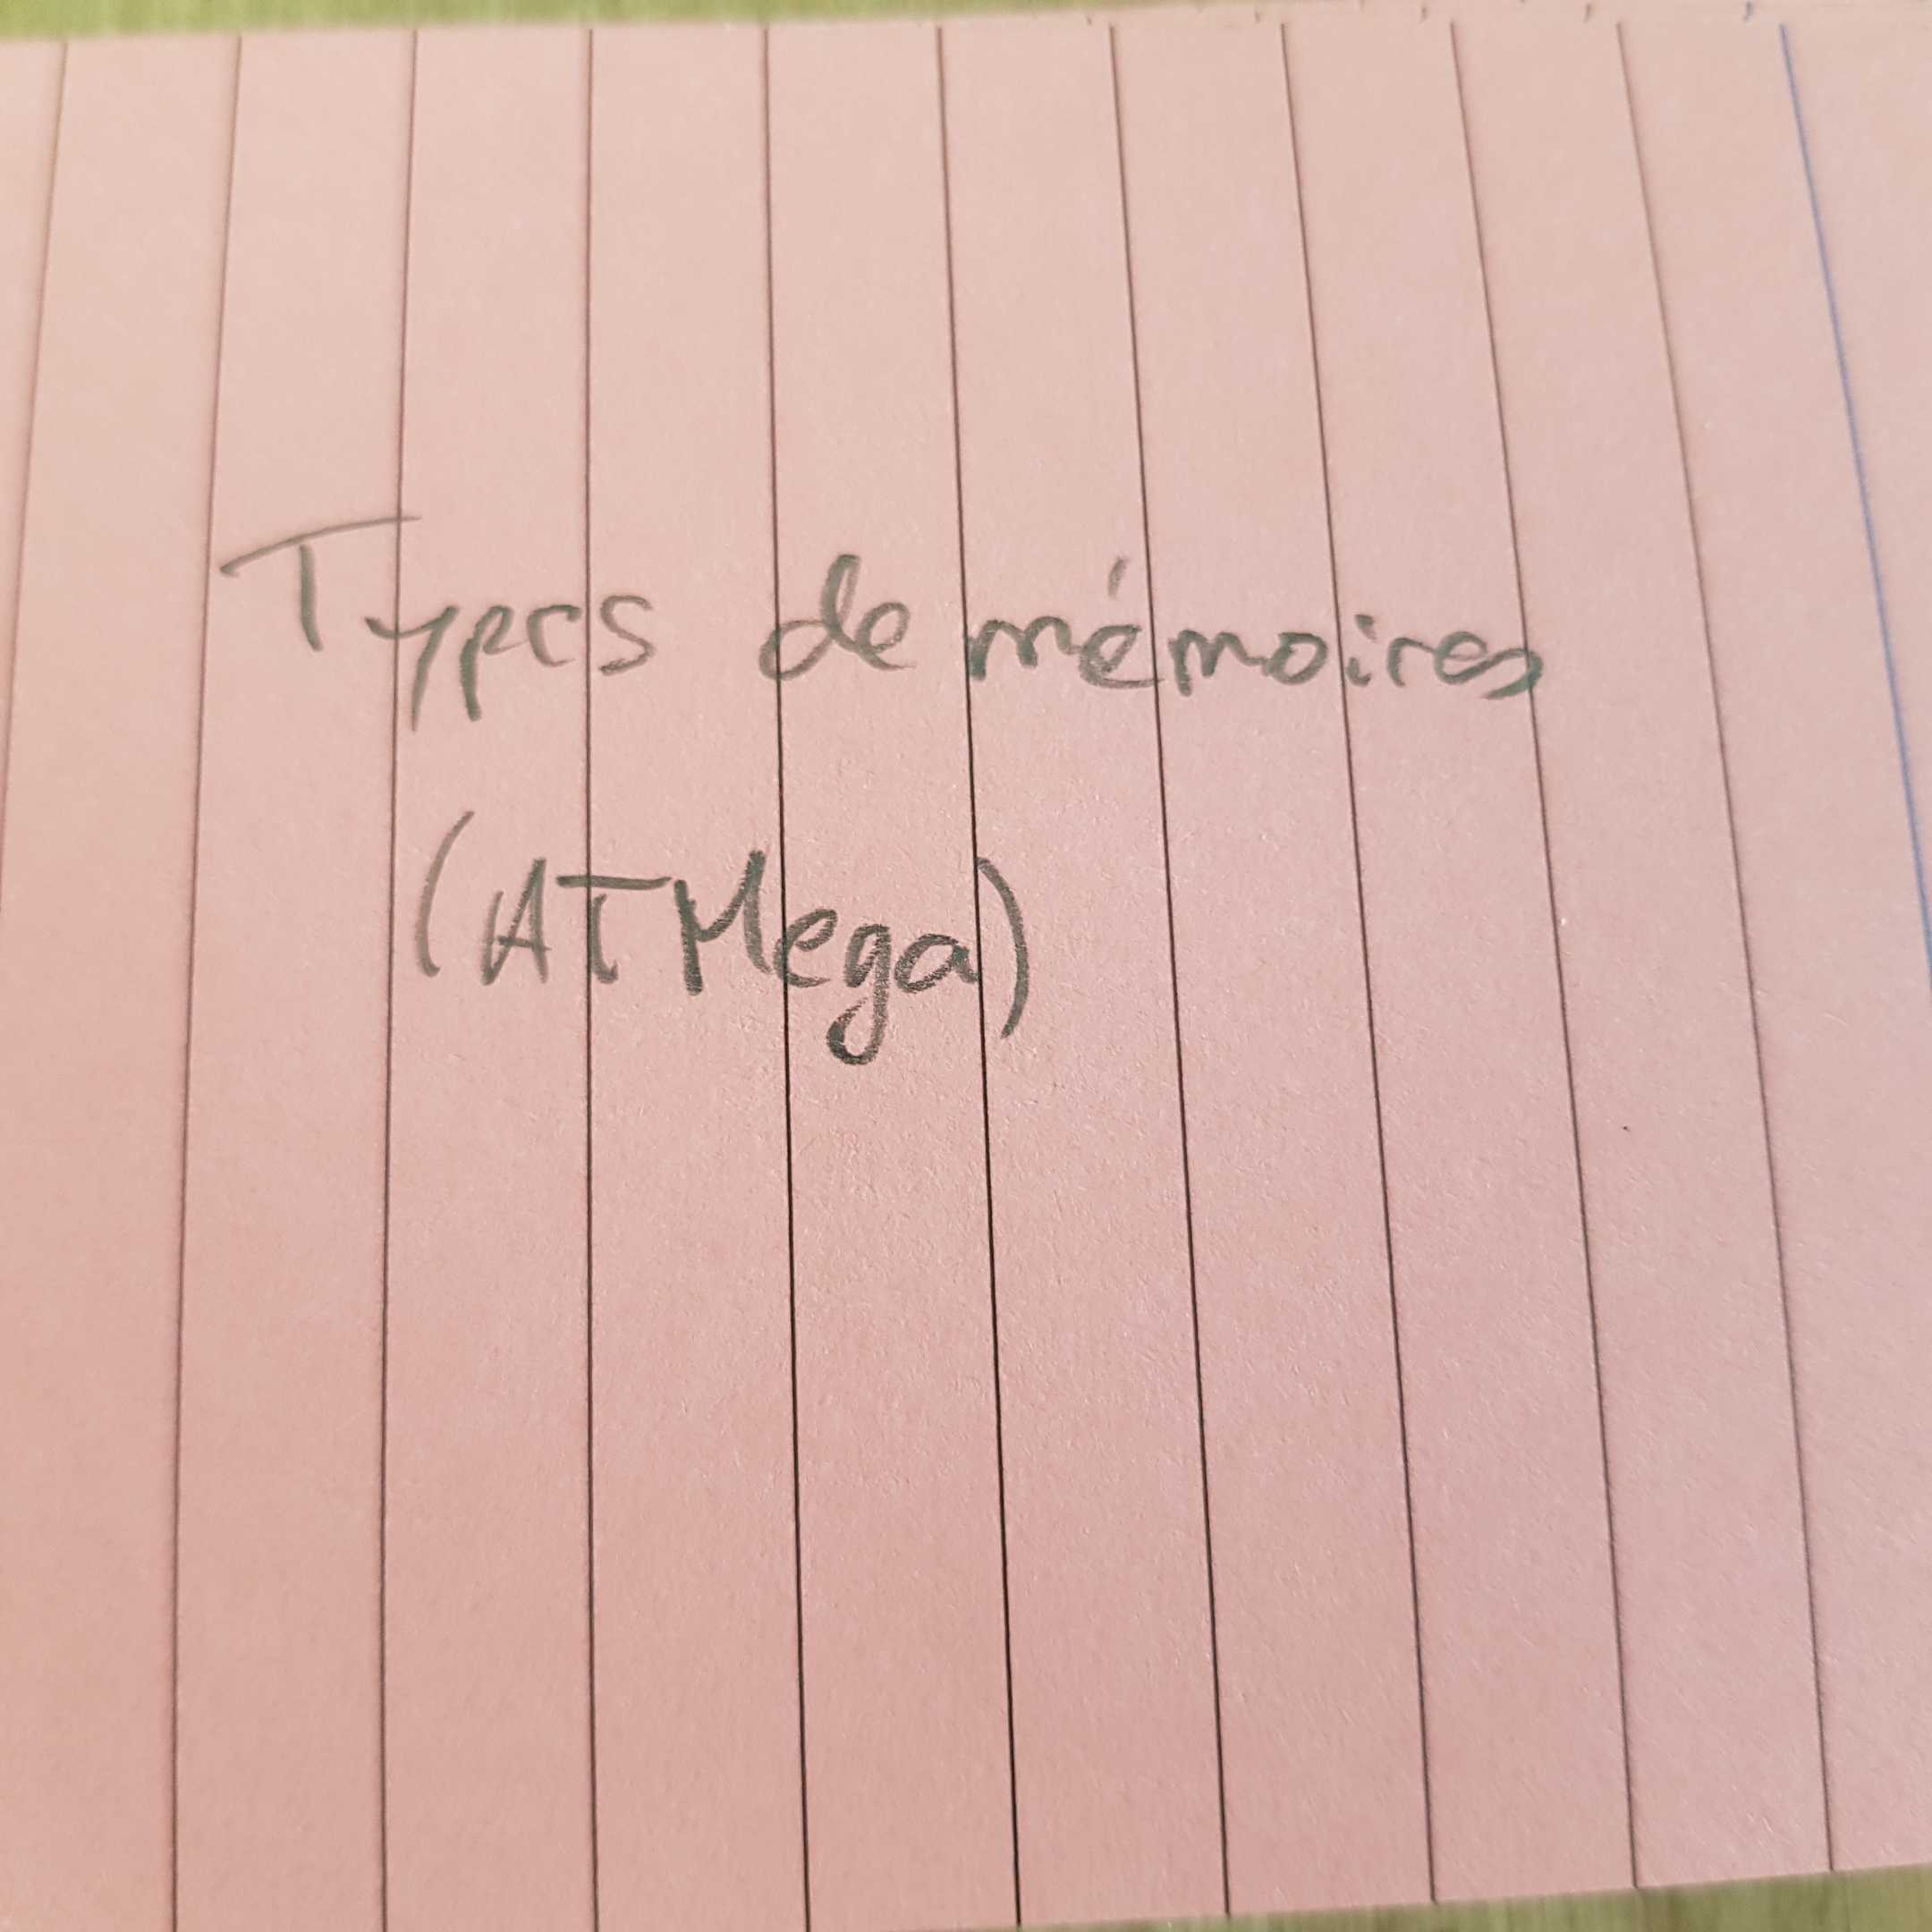 Types de mémoires
(ATMega)